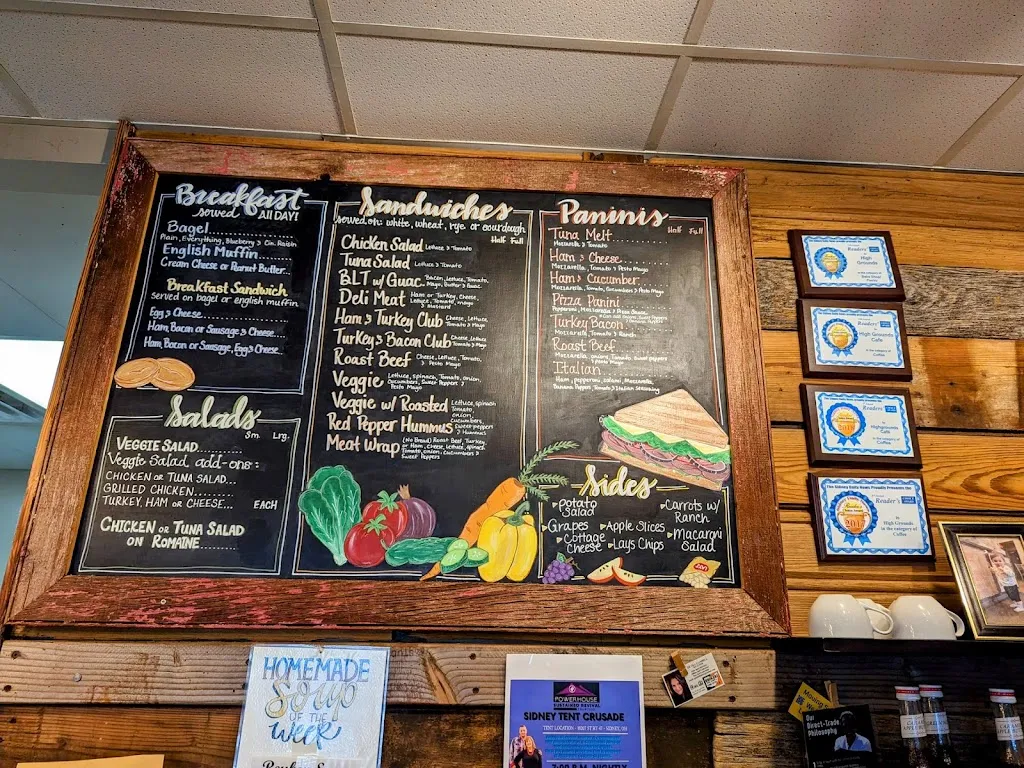 Breakfast
served All DAY!
Bagel
Plain, Everything, Blueberry & Cin. Raisin
English Muffin
Cream Cheese or Peanut Butter
Breakfast Sandwich
served on bagel or english muffin
Egg & Cheese
Ham, Bacon or Sausage & Cheese
Ham, Bacon or Sausage, Egg & Cheese
Salads
Sm. Lrg.
VEGGIE SALAD
Veggie Salad add-ons:
CHICKEN OR TUNA SALAD...
GRILLED CHICKEN
TURKEY, HAM OR CHEESE... EACH
CHICKEN OR TUNA SALAD
ON ROMAINE
Sandwiches
served on: white, wheat, rye or sourdough
Half Full
Chicken Salad Lettuce & Tomato
Tuna Salad Lettuce & Tomato
BLT w/ Guac Bacon, Lettuce, Tomato,
Mayo, Butter & Guac
Deli Meat Ham or Turkey, Cheese,
Lettuce, Tomato, mayo
& Mustard
Ham & Turkey Club Cheese, Lettuce,
Tomato & Mayo
Turkey & Bacon Club Cheese, Lettuce
Tomato & Mayo
Roast Beef Cheese, Lettuce, Tomato,
& Pesto Mayo
Veggie Lettuce, spinach, Tomato, onion,
Cucumbers, Sweet Peppers &
Pesto Mayo
Veggie w/ Roasted
Red Pepper Hummus
Lettuce, spinach
Tomato,
onion,
cucumbers,
Sweet peppers
& Hummus
Meat Wrap (No Bread) Roast Beef, Turkey,
or Ham, Cheese, Lettuce, spinach,
Tomato, onion, Cucumbers &
Sweet Peppers
Paninis
Half Full
Tuna Melt
Mozzarella & Tomato
Ham & Cheese
Mozzarella, Tomato & Pesto Mayo
Ham & Cucumber
Mozzarella, Tomato, Cucumbers & Pesto Mayo
Pizza Panini
Pepperoni, Mozzarella & Pizza Sauce
Turkey Bacon
Mozzarella, Tomato & Ranch
Roast Beef
Mozzarella, onions, Tomato, Sweet peppers
& Pesto mayo
Italian
Ham, pepperoni, salami, Mozzarella,
Banana Pepper, Tomato & Italian Seasoning
Sides
Potato
Salad
Carrots w/
Ranch
Grapes
Apple Slices
Macaroni
Salad
Cottage
Cheese
Lays Chips
Readers'
High
Grounds
Readers'
High Grounds
Cafe
in the category of
Coffee
Readers'
in the category of
Coffee
The Sidney Daily News Proudly Presents the
Reader's
2017
to
High Grounds
in the category of
Coffee
HOMEMADE
Soup
OF THE
Week
POWERHOUSE
SIDNEY TENT CRUSADE
7:00 P.M. NIGHTLY
Our
Direct-Trade
Philosophy